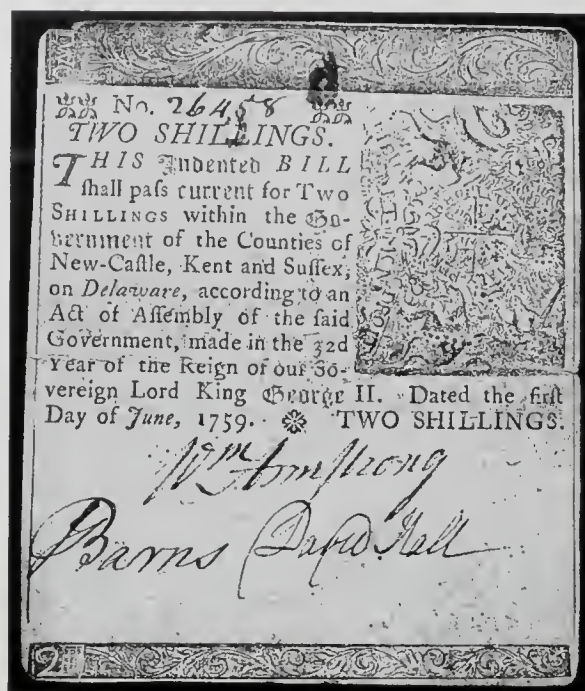 No. 26458
TWO SHILLINGS.
THIS Indented BILL
ſhall paſs current for Two
SHILLINGS within the Go-
vernment of the Counties of
New-Caſtle, Kent and Suſſex,
on Delaware, according to an
Act of Aſſembly of the ſaid
Government, made in the 32d
Year of the Reign of our So-
vereign Lord King George II. Dated the firſt
Day of June, 1759. TWO SHILLINGS.
Wm Armſtrong
Barns David Hall